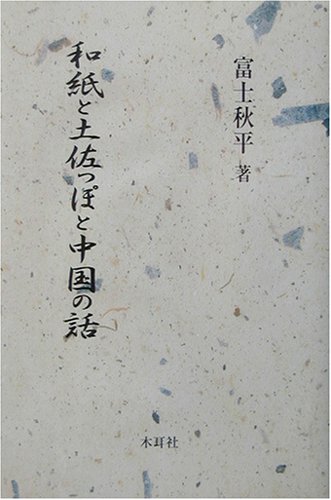 富士秋平 著
和紙と土佐っぽと中国の話
木耳社